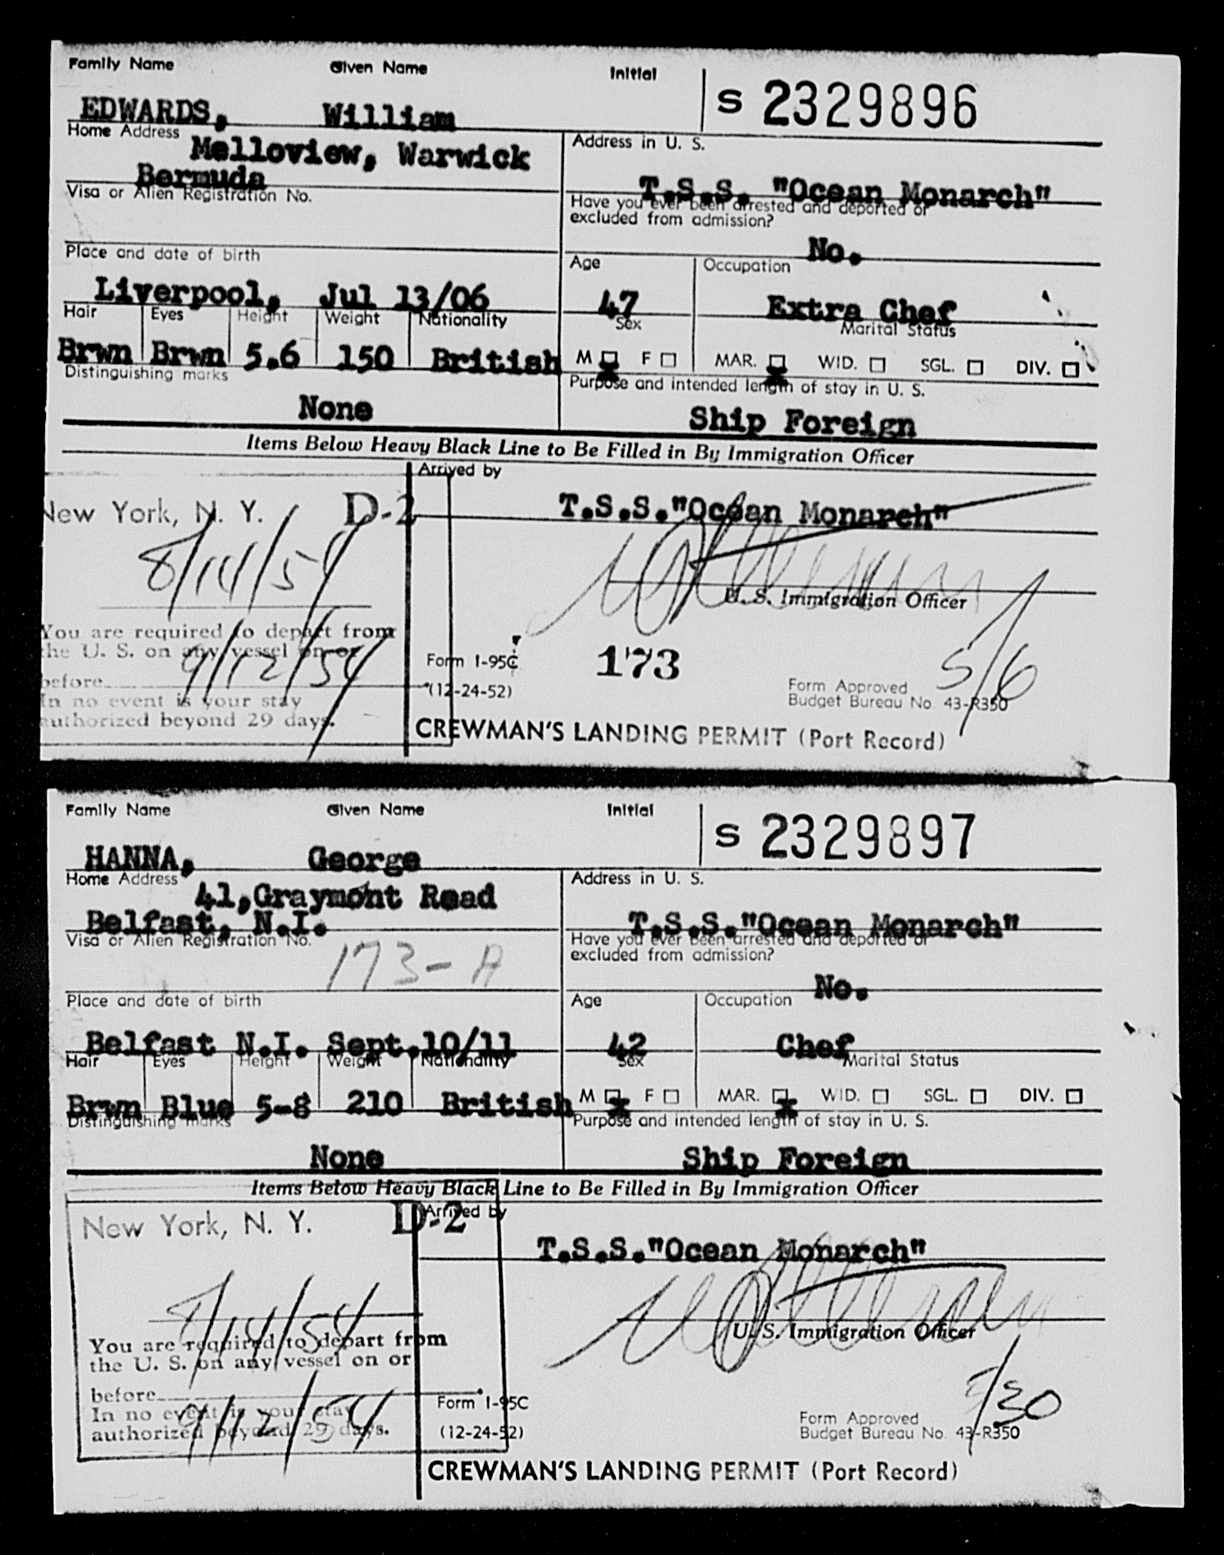 Family Name Given Name Initial
S 2329896
EDWARDS, William
Home Address
Melloview, Warwick
Bermuda
Address in U. S.
T.S.S. "Ocean Monarch"
Visa or Alien Registration No.
Have you ever been arrested and deported or
excluded from admission?
No.
Place and date of birth
Liverpool, Jul 13/06
Age
47
Occupation
Extra Chef
Hair Eyes Height Weight Nationality
Brwn Brwn 5.6 150 British
Sex
M F
Marital Status
MAR. WID. SGL. DIV.
Distinguishing marks
None
Purpose and intended length of stay in U. S.
Ship Foreign
Items Below Heavy Black Line to Be Filled in By Immigration Officer
New York, N. Y. D-2
8/14/54
You are required to depart from
the U. S. on any vessel on or
before
9/12/54
In no event is your stay
authorized beyond 29 days.
Arrived by
T.S.S."Ocean Monarch"
U. S. Immigration Officer
Form I-95C
(12-24-52)
173
5/6
Form Approved
Budget Bureau No. 43-R350
CREWMAN'S LANDING PERMIT (Port Record)
Family Name Given Name Initial
S 2329897
HANNA, George
Home Address
41,Graymont Road
Belfast, N.I.
Address in U. S.
T.S.S."Ocean Monarch"
Visa or Alien Registration No.
173-A
Have you ever been arrested and deported or
excluded from admission?
No.
Place and date of birth
Belfast N.I. Sept.10/11
Age
42
Occupation
Chef
Hair Eyes Height Weight Nationality
Brwn Blue 5-8 210 British
Sex
M F
Marital Status
MAR. WID. SGL. DIV.
Distinguishing marks
None
Purpose and intended length of stay in U. S.
Ship Foreign
Items Below Heavy Black Line to Be Filled in By Immigration Officer
New York, N. Y. D-2
8/14/54
You are required to depart from
the U. S. on any vessel on or
before
9/12/54
In no event is your stay
authorized beyond 29 days.
Arrived by
T.S.S."Ocean Monarch"
U. S. Immigration Officer
Form I-95C
(12-24-52)
Form Approved
Budget Bureau No. 43-R350
CREWMAN'S LANDING PERMIT (Port Record)